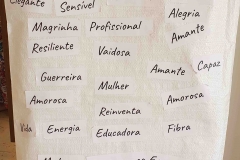 Elegante Sensível Alegria
Magrinha Profissional Amante
Resiliente Vaidosa
Guerreira Amante Capaz
Mulher
Amorosa Amorosa
Reinventa
Vida Energia Educadora Fibra